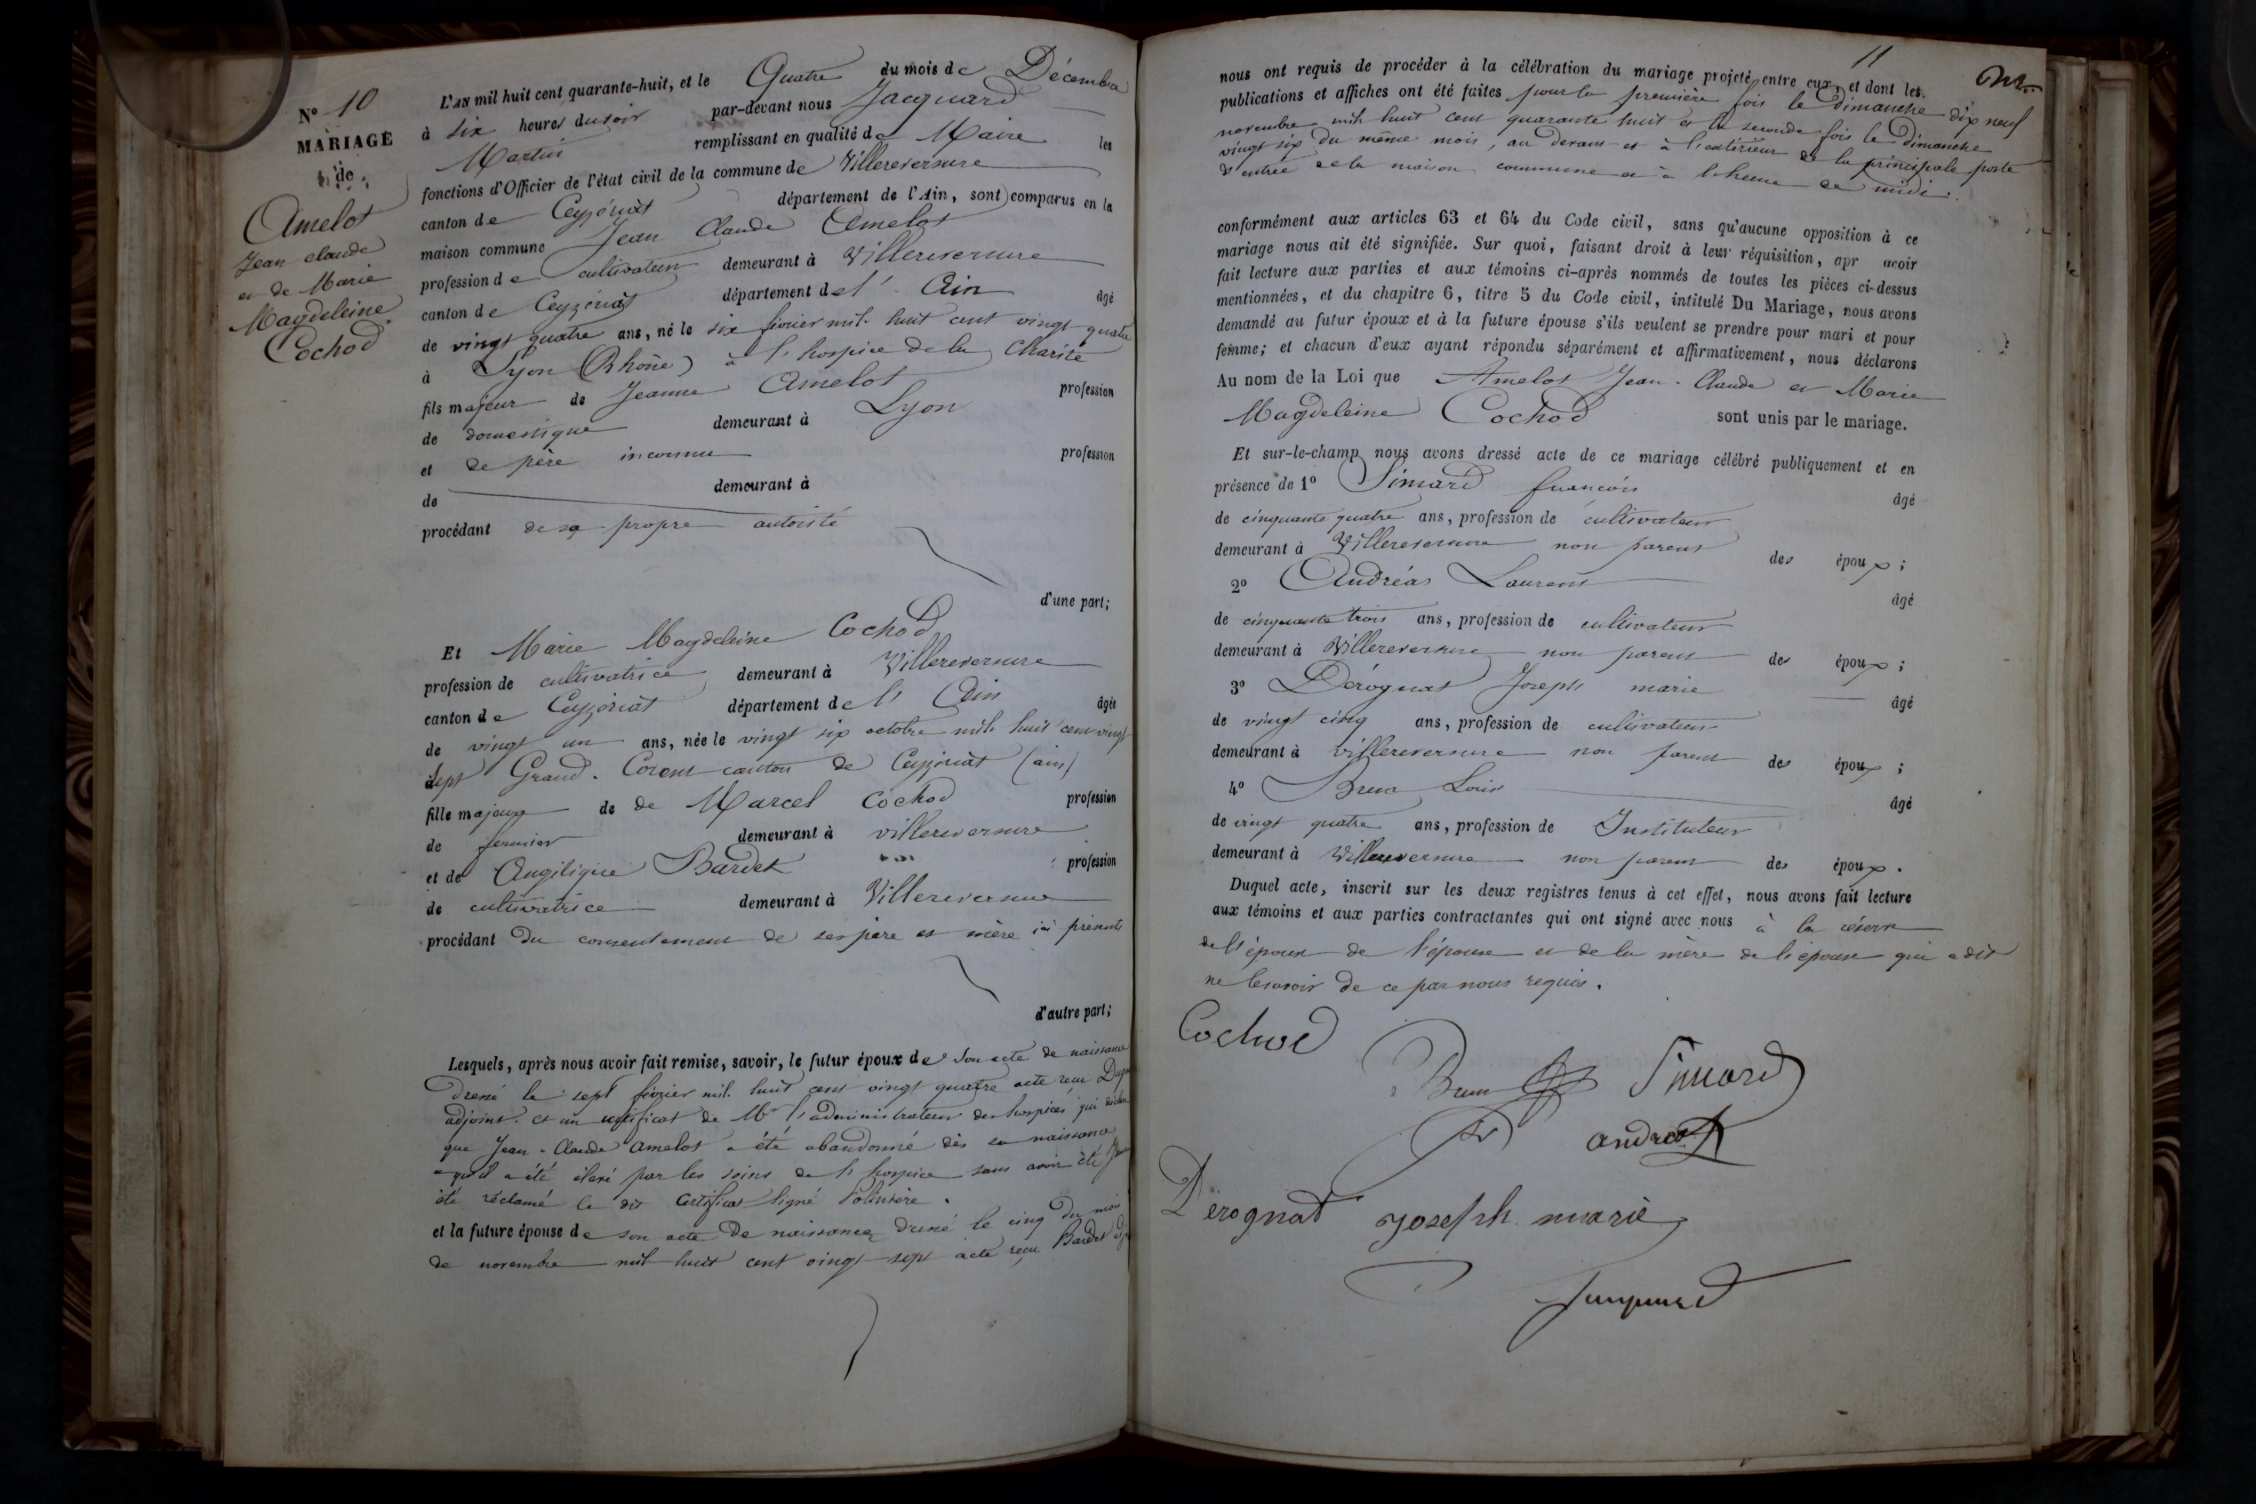 N° 10
MARIAGE
de
Amelot
Jean claude
et de Marie
Magdeleine
Cochod
L'AN mil huit cent quarante-huit, et le Quatre du mois de Décembre
à six heures du soir par-devant nous Jacquard
Martin remplissant en qualité de Maire les
fonctions d'Officier de l'état civil de la commune de Villereversure
canton de Ceyzériat département de l'Ain, sont comparus en la
maison commune Jean Claude Amelot
profession de cultivateur demeurant à Villereversure
canton de Ceyzériat département de l' Ain âgé
de vingt quatre ans, né le six février mil huit cent vingt quatre
à Lyon (Rhône) à l'hospice de la Charité
fils majeur de Jeanne Amelot profession
de domestique demeurant à Lyon
et de père inconnu profession
de demeurant à
procédant de sa propre autorité
d'une part;
Et Marie Magdeleine Cochod
profession de cultivatrice demeurant à Villereversure
canton de Ceyzériat département de l' Ain âgée
de vingt un ans, née le vingt six octobre mil huit cent vingt
sept Grand-Corent canton de Ceyzériat (ain)
fille majeure de de Marcel Cochod profession
de fermier demeurant à villereversure
et de Angiligue Bardet profession
de cultivatrice demeurant à Villereversure
procédant du consentement de ses père et mère ici présents
d'autre part;
Lesquels, après nous avoir fait remise, savoir, le futur époux de son acte de naissance
dressé le sept février mil huit cent vingt quatre acte reçu
adjoint et un certificat de Mr l'administrateur des hospices qui
que Jean-Claude Amelot a été abandonné dès sa naissance
qu'il a été élevé par les soins de l'hospice sans avoir été
été réclamé le dit certificat signé
et la future épouse de son acte de naissance dressé le cinq du mois
de novembre mil huit cent vingt sept acte reçu Bardet
11
nous ont requis de procéder à la célébration du mariage projeté entre eux, et dont les
publications et affiches ont été faites pour la première fois le dimanche dix neuf
novembre mil huit cent quarante huit et la seconde fois le Dimanche
vingt six du même mois, au devant et à l'extérieur de la principale porte
d'entrée de la maison commune et à l'heure de midi.
conformément aux articles 63 et 64 du Code civil, sans qu'aucune opposition à ce
mariage nous ait été signifiée. Sur quoi, faisant droit à leur réquisition, apr avoir
fait lecture aux parties et aux témoins ci-après nommés de toutes les pièces ci-dessus
mentionnées, et du chapitre 6, titre 5 du Code civil, intitulé Du Mariage, nous avons
demandé au futur époux et à la future épouse s'ils veulent se prendre pour mari et pour
femme; et chacun d'eux ayant répondu séparément et affirmativement, nous déclarons
Au nom de la Loi que Amelot Jean-Claude et Marie
Magdeleine Cochod sont unis par le mariage.
Et sur-le-champ nous avons dressé acte de ce mariage célébré publiquement et en
présence de 1° Simard francois âgé
de cinquante quatre ans, profession de cultivateur
demeurant à Villereversure non parent des époux;
2° Andréas Laurent âgé
de cinquante trois ans, profession de cultivateur
demeurant à Villereversure non parent des époux;
3° Dérognat Joseph marie âgé
de vingt cinq ans, profession de cultivateur
demeurant à villereversure non parent des époux;
4° Brun Louis âgé
de vingt quatre ans, profession de Instituteur
demeurant à Villereversure non parent des époux.
Duquel acte, inscrit sur les deux registres tenus à cet effet, nous avons fait lecture
aux témoins et aux parties contractantes qui ont signé avec nous à la réserve
de l'époux de l'épouse et de la mère de l'épouse qui a dit
ne le savoir de ce par nous requis.
Cochod
Brun
Simard
andreas
Dérognat joseph marie
Jacquard